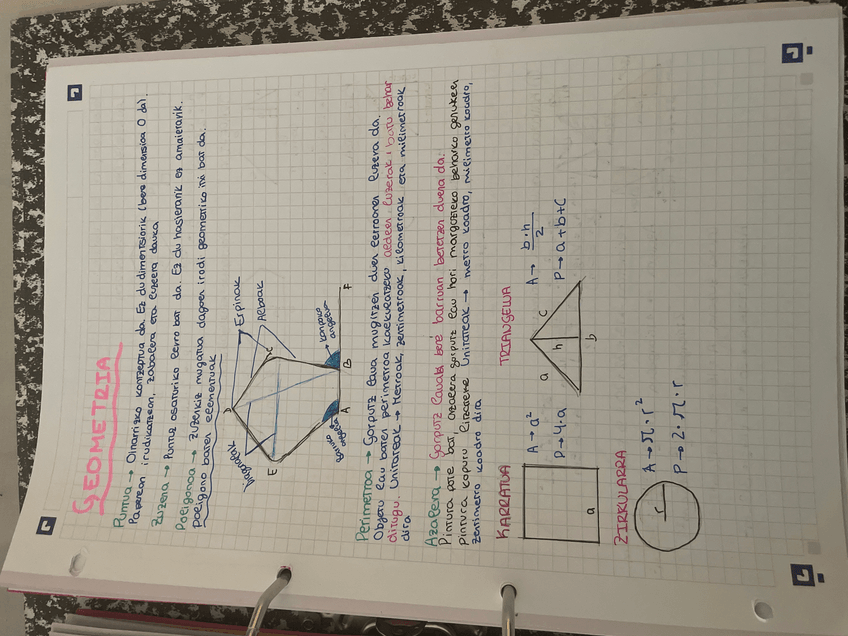 GEOMETRIA
Puntua → Oinarrizko kontzeptua da. Ez du dimentsiorik (bere dimensioa 0 da).
Paperean irudikatzean, zabalera eta luzeera dauka
Zuzena → Puntuz osaturiko lerro bat da. Ez du hasierarik ez amaierarik.
Poligonoa → zuzenkiz mugatua dagoen irudi geometriko itxi bat da.
Poligono baten elementuak
Diagonalak
Erpinak
Aldeak
D
C
E
A
B
F
barruko angelua
kanpoko angelua
Perimetroa → Gorputz laua mugitzen duen lerroaren luzera da.
Objetu lau baten perimetroa kalkulatzeko aldeen luzerak batu behar
ditugu. Unitateak → Metroak, zentimetroak, kilometroak eta milimetroak
dira
Azalera → Gorputz lauak bere barruan betetzen duena da.
Pintura pote bat, azalera gorputz lau hori margotzeko beharko genukeen
pintura kopuru lizateke. Unitateak → metro koadro, milimetro koadro,
zentimetro koadro dira
KARRATUA
a
A → a²
P → 4·a
TRIANGELUA
a
c
h
b
A → b·h/2
P → a+b+c
ZIRKULARRA
r
A → π·r²
P → 2·π·r